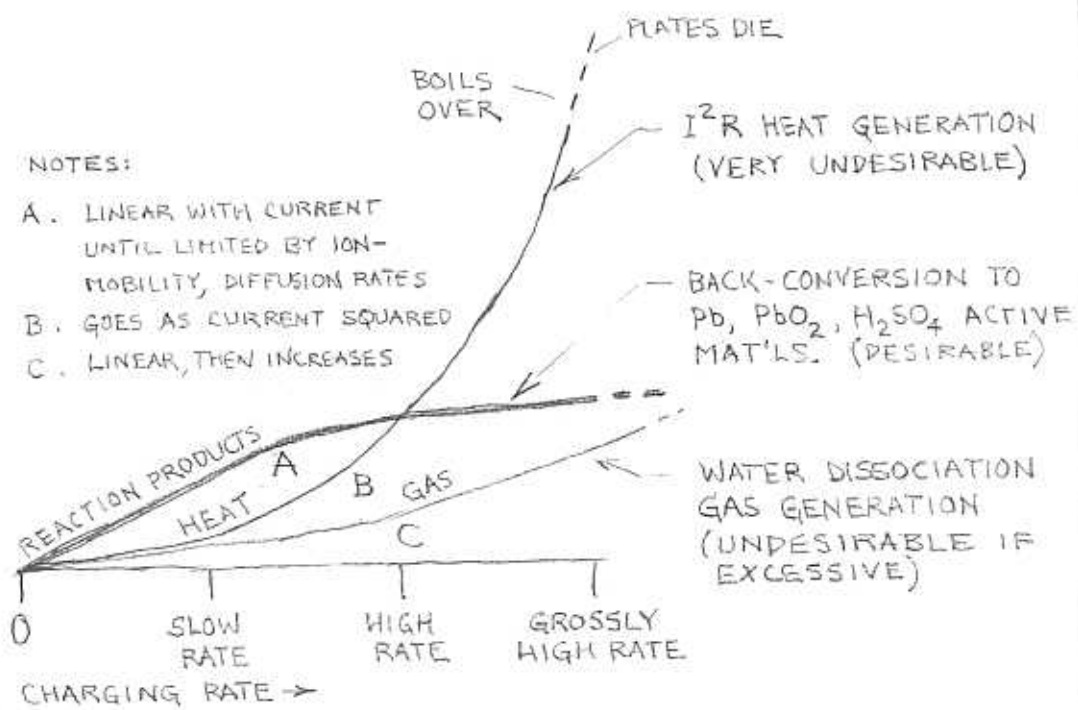 PLATES DIE
BOILS
OVER
I²R HEAT GENERATION
(VERY UNDESIRABLE)
NOTES:
A. LINEAR WITH CURRENT
UNTIL LIMITED BY ION-
MOBILITY, DIFFUSION RATES
B. GOES AS CURRENT SQUARED
C. LINEAR, THEN INCREASES
BACK-CONVERSION TO
Pb, PbO₂, H₂SO₄ ACTIVE
MAT'LS. (DESIRABLE)
REACTION PRODUCTS
A
HEAT
B
GAS
C
WATER DISSOCIATION
GAS GENERATION
(UNDESIRABLE IF
EXCESSIVE)
0
SLOW
RATE
HIGH
RATE
GROSSLY
HIGH RATE
CHARGING RATE →